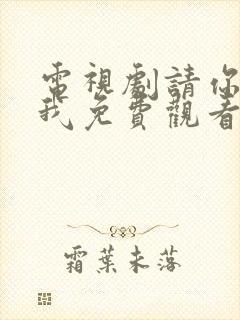 電視劇請你
我免費觀看
霜葉未落